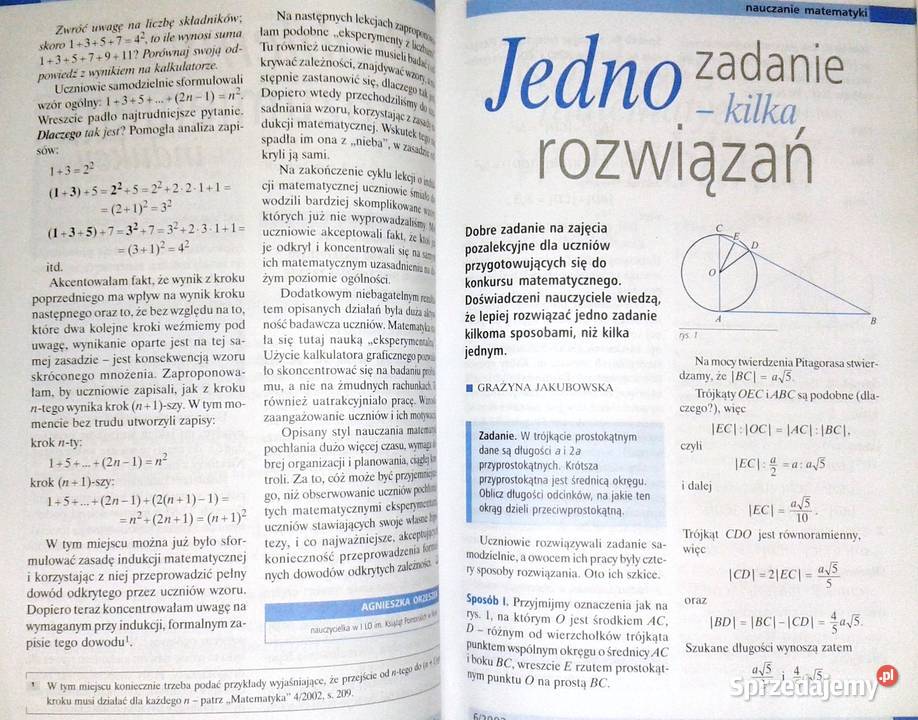 Zwróć uwagę na liczbę składników;
skoro 1+3+5+7=4², to ile wynosi suma
1+3+5+7+9+11? Porównaj swoją od-
powiedź z wynikiem na kalkulatorze.
Uczniowie samodzielnie sformułowali
wzór ogólny: 1+3+5+...+(2n−1)=n².
Wreszcie padło najtrudniejsze pytanie.
Dlaczego tak jest? Pomogła analiza zapi-
sów:
1+3=2²
(1+3)+5=2²+5=2²+2·2·1+1=
=(2+1)²=3²
(1+3+5)+7=3²+7=3²+2·3·1+1=
=(3+1)²=4²
itd.
Akcentowałam fakt, że wynik z kroku
poprzedniego ma wpływ na wynik kroku
następnego oraz to, że bez względu na to,
które dwa kolejne kroki weźmiemy pod
uwagę, wynikanie oparte jest na tej sa-
mej zasadzie – jest konsekwencją wzoru
skróconego mnożenia. Zaproponowa-
łam, by uczniowie zapisali, jak z kroku
n-tego wynika krok (n+1)-szy. W tym mo-
mencie bez trudu utworzyli zapisy:
krok n-ty:
1+5+...+(2n−1)=n²
krok (n+1)-szy:
1+5+...+(2n−1)+(2(n+1)−1)=
=n²+(2n+1)=(n+1)²
W tym miejscu można już było sfor-
mułować zasadę indukcji matematycznej
i korzystając z niej przeprowadzić pełny
dowód odkrytego przez uczniów wzoru.
Dopiero teraz koncentrowałam uwagę na
wymaganym przy indukcji, formalnym za-
pisie tego dowodu¹.
Na następnych lekcjach
łam podobne „eksperymenty z
Tu również uczniowie musieli badać
krywać zależności, znajdywać wzory,
stępnie zastanowić się, dlaczego tak
Dopiero wtedy przechodziliśmy do
sadniania wzoru, korzystając z zasady
dukcji matematycznej. Wskutek tego
spadła im ona z „nieba”, w zasadzie
kryli ją sami.
Na zakończenie cyklu lekcji o
cji matematycznej uczniowie śmiało
wodzili bardziej skomplikowane
których już nie wyprowadzaliśmy.
uczniowie akceptowali fakt, że ktoś
je odkrył i koncentrowali się na
ich matematycznym uzasadnieniu na
żym poziomie ogólności.
Dodatkowym niebagatelnym
tem opisanych działań była duża
ność badawcza uczniów. Matematyka
ła się tutaj nauką
Użycie kalkulatora graficznego
ło skoncentrować się na badaniu
mu, a nie na żmudnych rachunkach.
również uatrakcyjniało pracę.
zaangażowanie uczniów i ich
Opisany styl nauczania
pochłania dużo więcej czasu, wymaga
brej organizacji i planowania, ciągłej
troli. Za to, cóż może być
go, niż obserwowanie uczniów
tych matematycznymi
uczniów stawiających swoje własne
tezy, i co najważniejsze,
konieczność przeprowadzenia
nych dowodów odkrytych zależności.
AGNIESZKA
nauczycielka w I LO im. Książąt Pomorskich w
¹ W tym miejscu koniecznie trzeba podać przykłady wyjaśniające, że przejście od n-tego do
kroku musi działać dla każdego n – patrz „Matematyka” 4/2002, s. 209.
nauczanie matematyki
Jedno zadanie
– kilka
rozwiązań
Dobre zadanie na zajęcia
pozalekcyjne dla uczniów
przygotowujących się do
konkursu matematycznego.
Doświadczeni nauczyciele wiedzą,
że lepiej rozwiązać jedno zadanie
kilkoma sposobami, niż kilka
jednym.
GRAŻYNA JAKUBOWSKA
Zadanie. W trójkącie prostokątnym
dane są długości a i 2a
przyprostokątnych. Krótsza
przyprostokątna jest średnicą okręgu.
Oblicz długości odcinków, na jakie ten
okrąg dzieli przeciwprostokątną.
Uczniowie rozwiązywali zadanie sa-
modzielnie, a owocem ich pracy były czte-
ry sposoby rozwiązania. Oto ich szkice.
Sposób I. Przyjmijmy oznaczenia jak na
rys. 1, na którym O jest środkiem AC,
D – różnym od wierzchołków trójkąta
punktem wspólnym okręgu o średnicy AC
i boku BC, wreszcie E rzutem prostokąt-
nym punktu O na prostą BC.
C
E
D
O
A
B
rys. 1
Na mocy twierdzenia Pitagorasa stwier-
dzamy, że |BC| = a√5.
Trójkąty OEC i ABC są podobne (dla-
czego?), więc
|EC|:|OC| = |AC|:|BC|,
czyli
|EC|: a/2 = a: a√5
i dalej
|EC| = a√5/10.
Trójkąt CDO jest równoramienny,
więc
|CD| = 2|EC| = a√5/5
oraz
|BD| = |BC|−|CD| = 4/5 a√5.
Szukane długości wynoszą zatem
a√5 i 4 √5.
6/2002
Sprzedajemy.pl